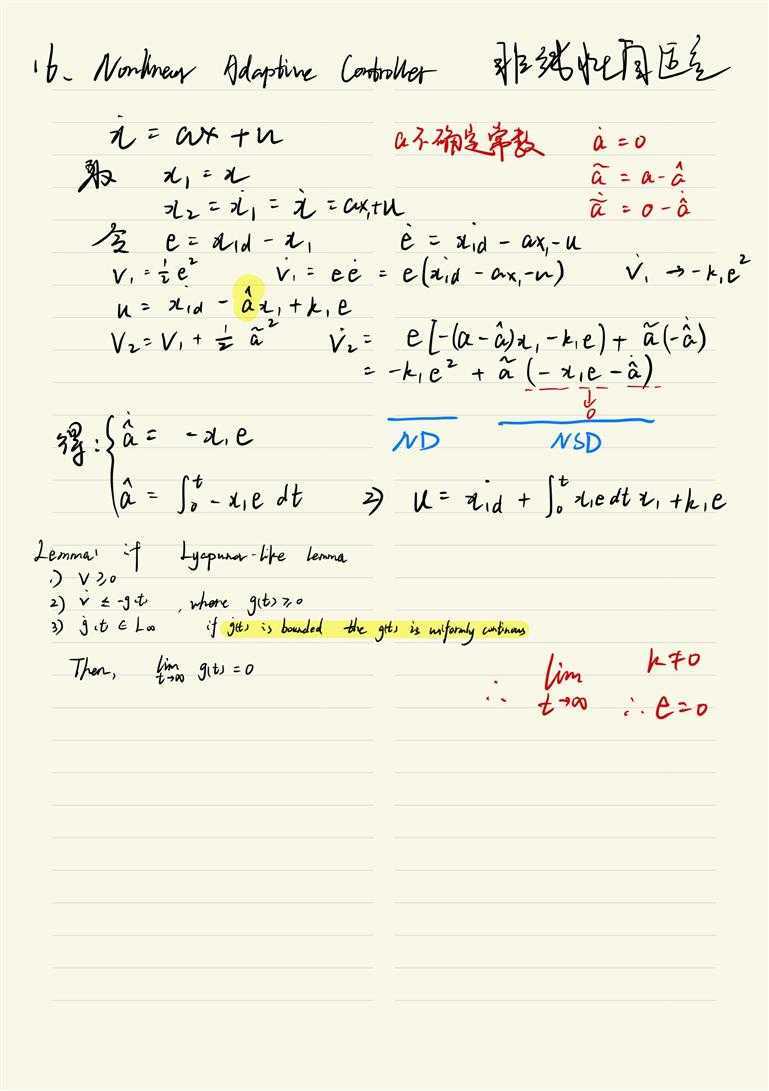 16、Nonlinear Adaptive Controller 非线性自适应
ẋ = ax + u a不确定常数 ȧ = 0
取 x₁ = x ã = a - â
x₂ = ẋ₁ = ẋ = ax₁+u ã̇ = 0 - â̇
令 e = x₁d - x₁ ė = ẋ₁d - ax₁ - u
V₁ = ½e² V̇₁ = eė = e(ẋ₁d - ax₁ - u) V̇₁ → -k₁e²
u = ẋ₁d - âx₁ + k₁e
V₂ = V₁ + ½ã² V̇₂ = e[-(a-â)x₁ - k₁e) + ã(-â̇)
= -k₁e² + ã(-x₁e - â̇)
↓
0
ND NSD
得:{ â̇ = -x₁e
â = ∫₀ᵗ -x₁e dt ⇒ u = ẋ₁d + ∫₀ᵗ x₁e dt x₁ + k₁e
Lemma: if Lyapunov-like lemma
1) V ≥ 0
2) V̇ ≤ -g(t), where g(t) ≥ 0
3) ġ(t) ∈ L∞ if ġ(t) is bounded the g(t) is uniformly continous
Then, lim t→∞ g(t) = 0
∴ lim t→∞ k ≠ 0
∴ e = 0